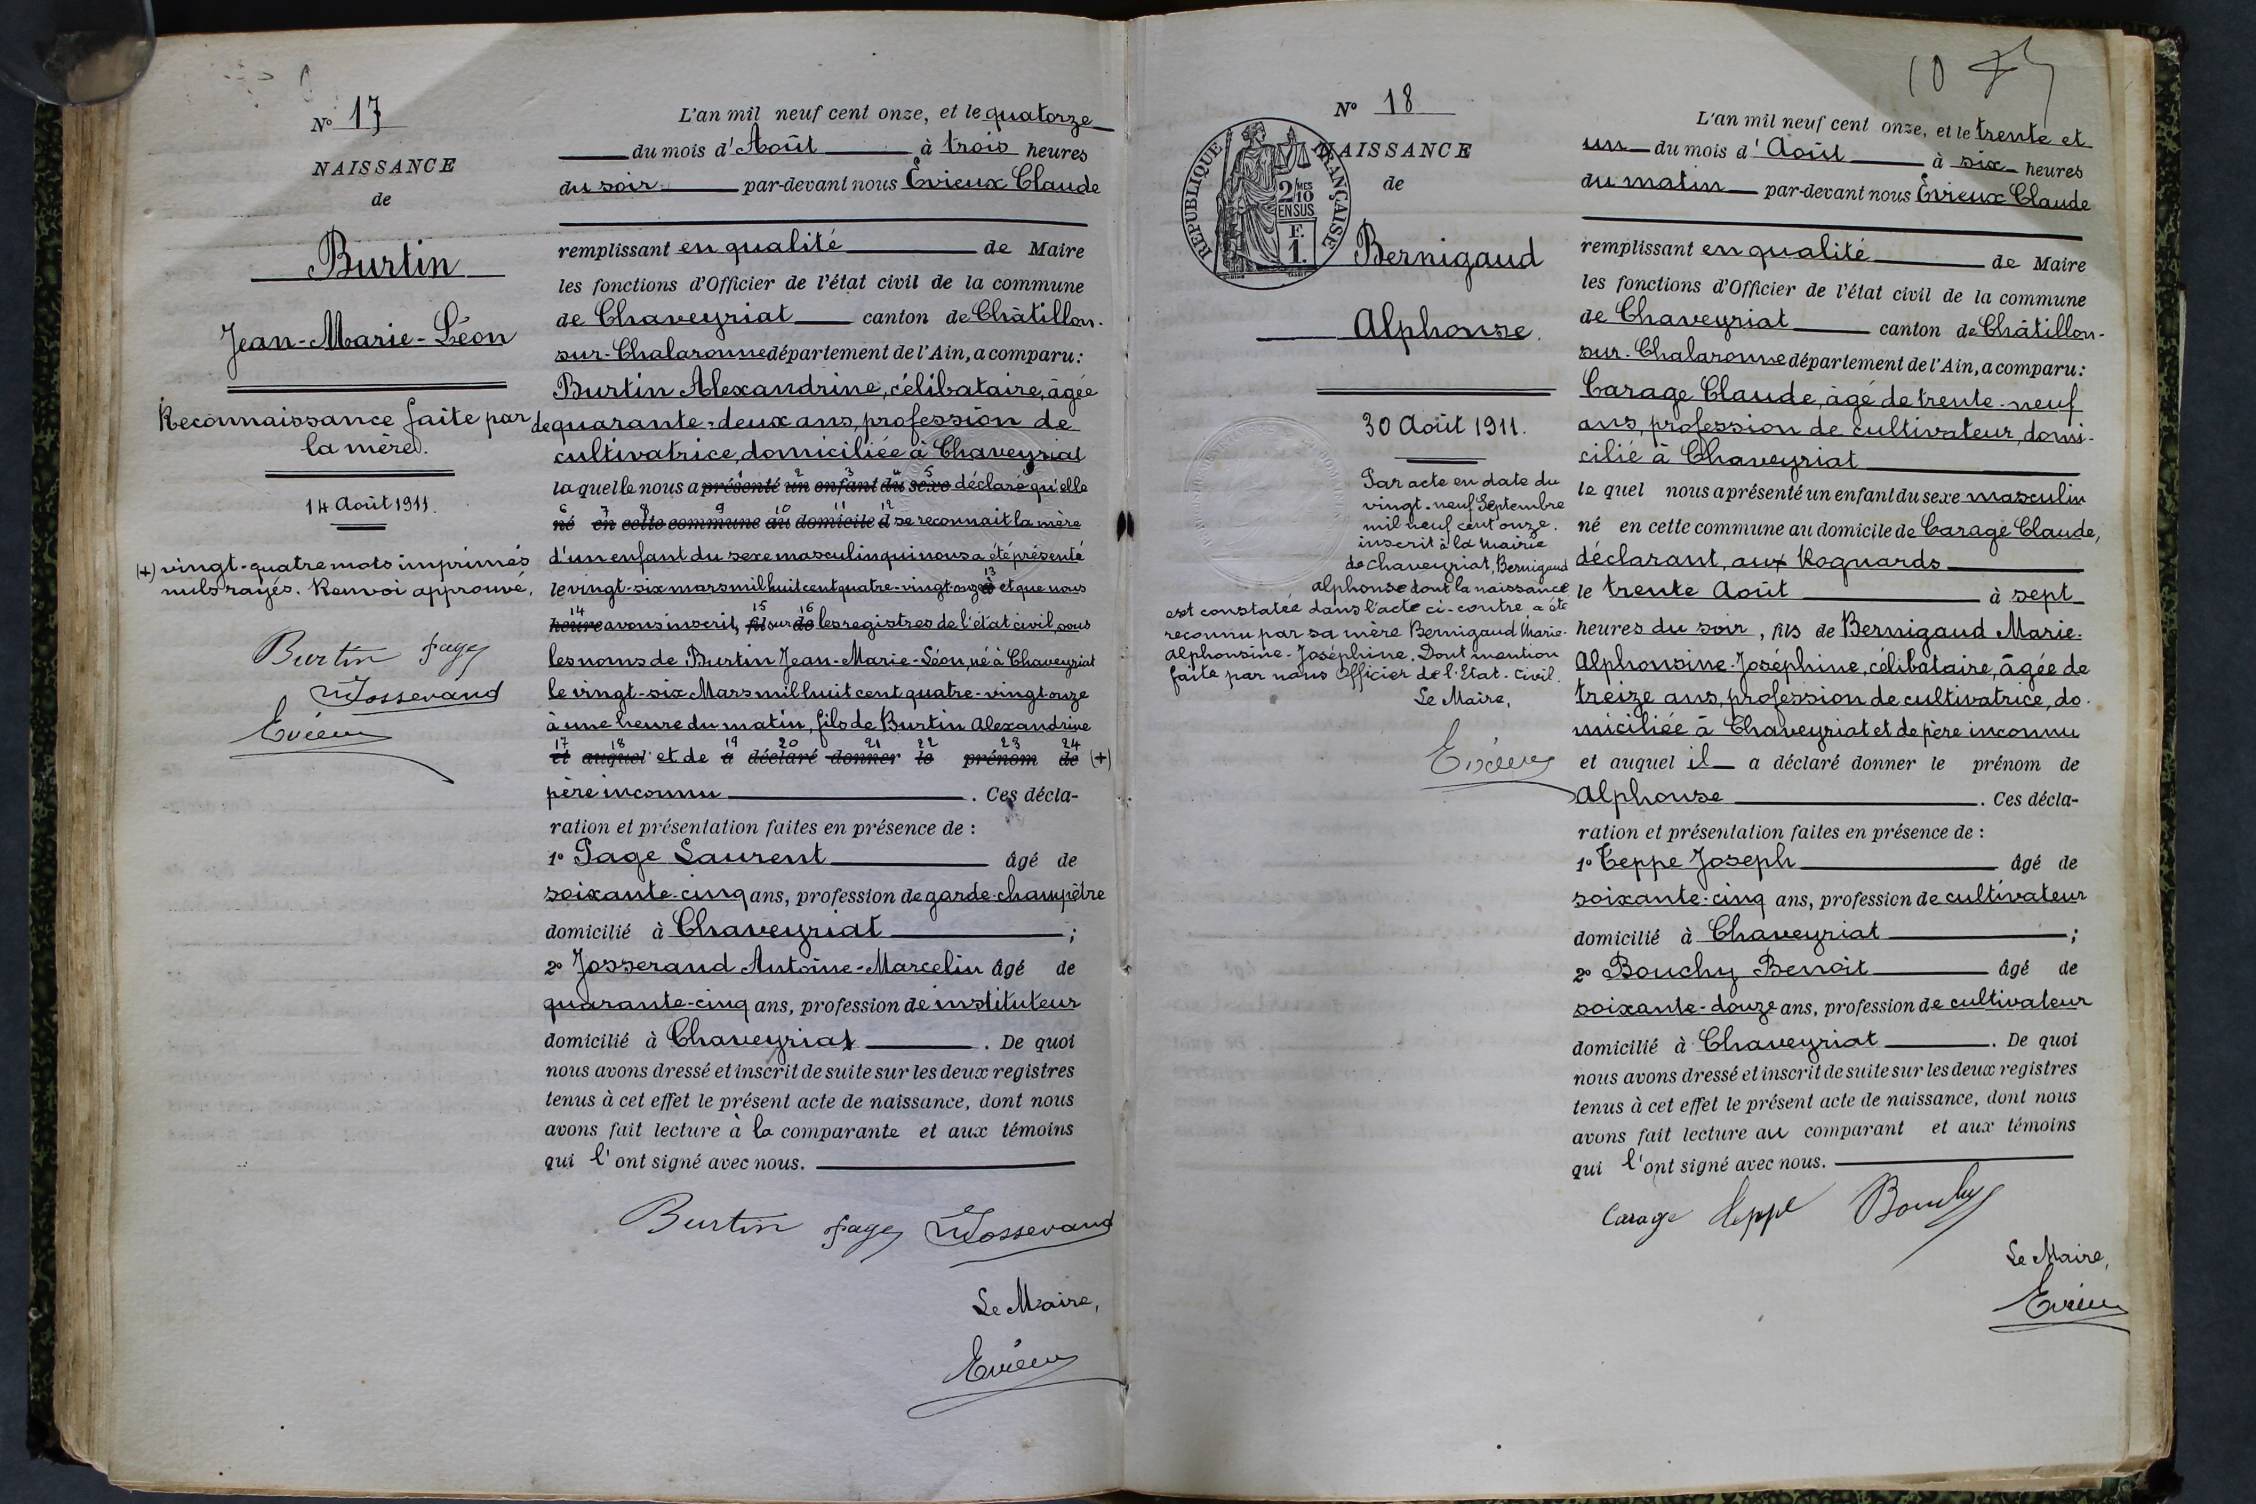 N° 17
NAISSANCE
de
Burtin
Jean-Marie-Léon
Reconnaissance faite par
la mère.
14 Août 1911.
(+) vingt-quatre mots imprimés
nuls rayés. Renvoi approuvé.
Burtin Page
Josserand
Evieux
L'an mil neuf cent onze, et le quatorze
du mois d'Août à trois heures
du soir par-devant nous Évieux Claude
remplissant en qualité de Maire
les fonctions d'Officier de l'état civil de la commune
de Chaveyriat canton de Châtillon-
sur-Chalaronne département de l'Ain, a comparu:
Burtin Alexandrine, célibataire, âgée
de quarante-deux ans, profession de
cultivatrice, domiciliée à Chaveyriat
1 2 3 4 5
la quelle nous a présenté un enfant du sexe déclaré qu'elle
6 7 8 9 10 11 12
né en cette commune au domicile d se reconnait la mère
d'un enfant du sexe masculin qui nous a été présenté
13
le vingt-six mars mil huit cent quatre-vingt-onze à et que nous
14 15 16
heure avons inscrit, fil sur de les registres de l'état civil, sous
les noms de Burtin Jean-Marie-Léon, né à Chaveyriat
le vingt-six Mars mil huit cent quatre-vingt-onze
à une heure du matin, fils de Burtin Alexandrine
17 18 19 20 21 22 23 24
et auquel et de a déclaré donner le prénom de (+)
père inconnu . Ces décla-
ration et présentation faites en présence de :
1° Page Laurent âgé de
soixante-cinq ans, profession de garde-champêtre
domicilié à Chaveyriat ;
2° Josserand Antoine-Marcelin âgé de
quarante-cinq ans, profession de instituteur
domicilié à Chaveyriat . De quoi
nous avons dressé et inscrit de suite sur les deux registres
tenus à cet effet le présent acte de naissance, dont nous
avons fait lecture à la comparante et aux témoins
qui l'ont signé avec nous.
Burtin Page Josserand
Le Maire,
Evieux
10
N° 18
NAISSANCE
de
RÉPUBLIQUE FRANÇAISE
2 MES
10
EN SUS
F.
1.
Bernigaud
Alphonse.
30 Août 1911.
Par acte en date du
vingt-neuf Septembre
mil neuf cent onze.
inscrit à la Mairie
de Chaveyriat, Bernigaud
Alphonse dont la naissance
est constatée dans l'acte ci-contre a été
reconnu par sa mère Bernigaud Marie-
Alphonsine-Joséphine. Dont mention
faite par nous Officier de l'Etat-Civil.
Le Maire,
Evieux
L'an mil neuf cent onze, et le trente et
un du mois d'Août à six heures
du matin par-devant nous Évieux Claude
remplissant en qualité de Maire
les fonctions d'Officier de l'état civil de la commune
de Chaveyriat canton de Châtillon-
sur-Chalaronne département de l'Ain, a comparu:
Carage Claude, âgé de trente-neuf
ans, profession de cultivateur, domi-
cilié à Chaveyriat
le quel nous a présenté un enfant du sexe masculin
né en cette commune au domicile de Carage Claude,
déclarant, aux Roquards
le trente Août à sept
heures du soir, fils de Bernigaud Marie-
Alphonsine-Joséphine, célibataire, âgée de
treize ans, profession de cultivatrice, do-
miciliée à Chaveyriat et de père inconnu
et auquel il a déclaré donner le prénom de
Alphonse . Ces décla-
ration et présentation faites en présence de :
1° Teppe Joseph âgé de
soixante-cinq ans, profession de cultivateur
domicilié à Chaveyriat ;
2° Bouchy Benoît âgé de
soixante-douze ans, profession de cultivateur
domicilié à Chaveyriat . De quoi
nous avons dressé et inscrit de suite sur les deux registres
tenus à cet effet le présent acte de naissance, dont nous
avons fait lecture au comparant et aux témoins
qui l'ont signé avec nous.
Carage Teppe Bouchy
Le Maire,
Evieux